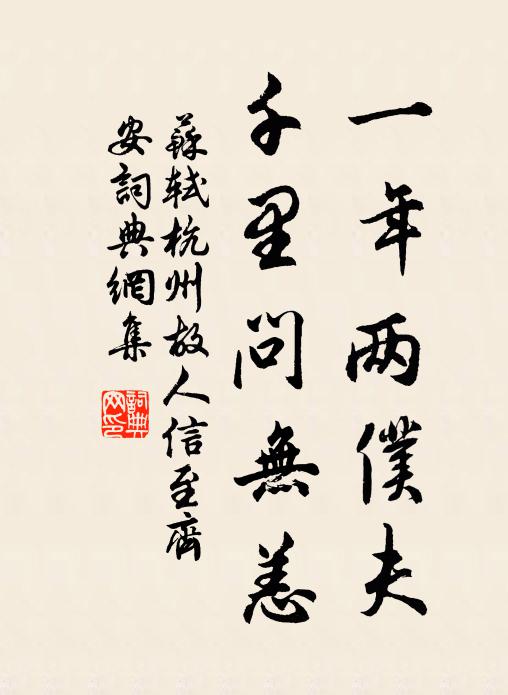 一年两僕夫
千里問無恙
蘇軾杭州故人信至齊
安詞典網集
詞典
网印